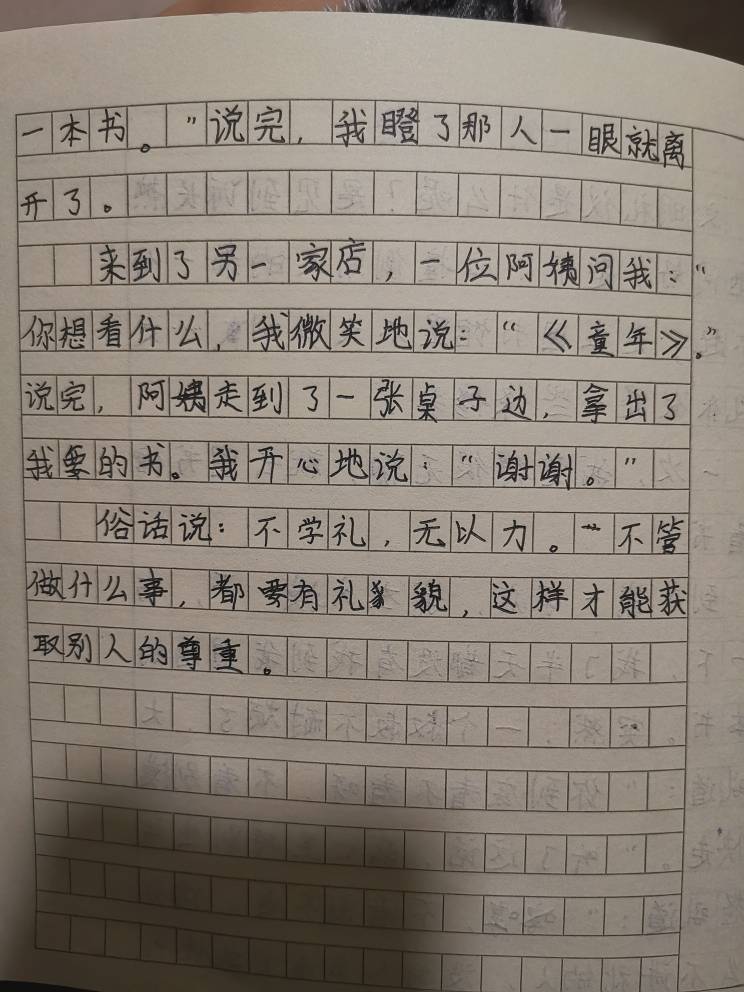 一本书。”说完，我瞪了那人一眼就离
开了。
来到了另一家店，一位阿姨问我：“
你想看什么，我微笑地说：“《童年》。”
说完，阿姨走到了一张桌子边，拿出了
我要的书。我开心地说：“谢谢。”
俗话说：不学礼，无以力。”不管
做什么事，都要有礼貌，这样才能获
取别人的尊重。